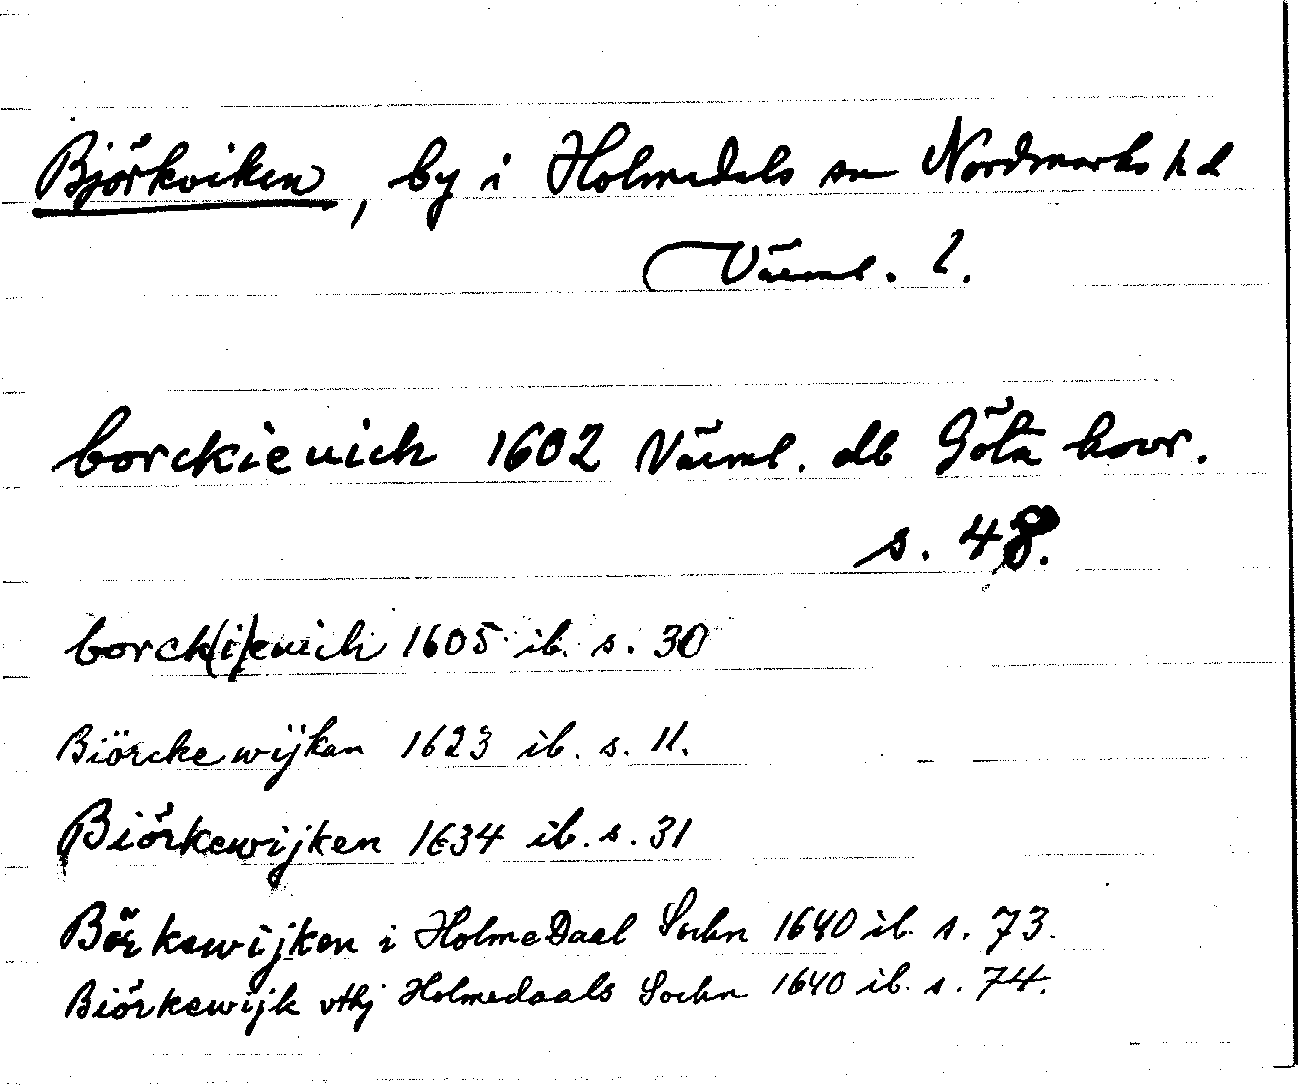 Björkviken, by i Holmedals sn Nordmarks hd
Värml. l.
borckieuich 1602 Värml. db Göta hovr.
s. 48.
borck(i)euich 1605 ib. s. 30
Biörckewijkan 1623 ib. s. 11.
Biörkewijken 1634 ib. s. 31
Börkewijken i HolmeDaal Sochn 1640 ib. s. 73.
Biörkewijk vthj Holmedaals Sochn 1640 ib. s. 74.